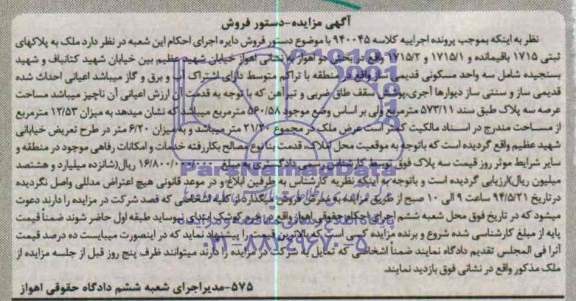 آگهی مزایده-دستور فروش
نظر به اینکه بموجب پرونده اجراییه کلاسه ۹۴۰۰۴۵ با موضوع دستور فروش دایره اجرای احکام این شعبه در نظر دارد ملک به پلاکهای
ثبتی ۱۷۱۵ باقیمانده و ۱۷۱۵/۱ و ۱۷۱۵/۲ واقع در بخش دو اهواز به نشانی اهواز خیابان شهید عظیم بین خیابان شهید کتانباف و شهید
بسنجیده شامل سه واحد مسکونی قدیمی ساز واقع در منطقه با تراکم متوسط دارای اشتراک آب و برق و گاز میباشد اعیانی احداث شده
قدیمی ساز و سنتی ساز دیوارها آجری پوشش سقف طاق ضربی و تیر آهن که با توجه به قدمت آن ارزش اعیانی آن ناچیز میباشد مساحت
عرصه سه پلاک طبق سند ۵۷۳/۱۱ مترمربع ولی بر اساس وضع موجود ۵۶۰/۵۸ مترمربع میباشد که نشان میدهد به میزان ۱۲/۵۳ مترمربع
از مساحت مندرج در اسناد مالکیت کمتر است عرض ملک در مجموع ۲۱/۲۰ متر میباشد و به میزان ۶/۲۰ متر در طرح تعریض خیابانی
شهید عظیم واقع گردیده است که باتوجه به موقعیت محل املاک، قدمت بنا نوع مصالح بکاررفته خدمات و امکانات رفاهی موجود در منطقه و
سایر شرایط موثر روز قیمت سه پلاک فوق توسط کارشناس رسمی دادگستری به مبلغ ۱۶/۸۰۰/۰۰۰/۰۰۰ ریال(شانزده میلیارد و هشتصد
میلیون ریال)ارزیابی گردیده است و باتوجه به اینکه نظریه کارشناس به طرفین ابلاغ و در موعد قانونی هیچ اعتراض مدللی واصل نگردیده
درتاریخ ۹۴/۵/۲۱ ساعت ۹ الی ۱۰ صبح از طریق مزایده به فروش میگذارد لذا کلیه اشخاصی که قصد شرکت در مزایده را دارند دعوت
میشود که در تاریخ فوق محل شعبه ششم اجرای احکام حقوقی اهواز واقع در طبقه اول حاضر شوند ضمناً قیمت
پایه از مبلغ کارشناسی شده شروع و برنده مزایده کسی است که بالاترین قیمت را پیشنهاد نماید که در اینصورت میبایست ده درصد قیمت
آنرا فی المجلس تقدیم دادگاه نمایند ضمناً اشخاصی که تمایل به شرکت در مزایده را دارند میتوانند ظرف پنج روز قبل از جلسه مزایده از
ملک مذکور واقع در نشانی فوق بازدید نمایند.
۵۷۵-مدیراجرای شعبه ششم دادگاه حقوقی اهواز
ParsNamadData
۰۲۱-۸۸۳۴۹۶۷۰-۵